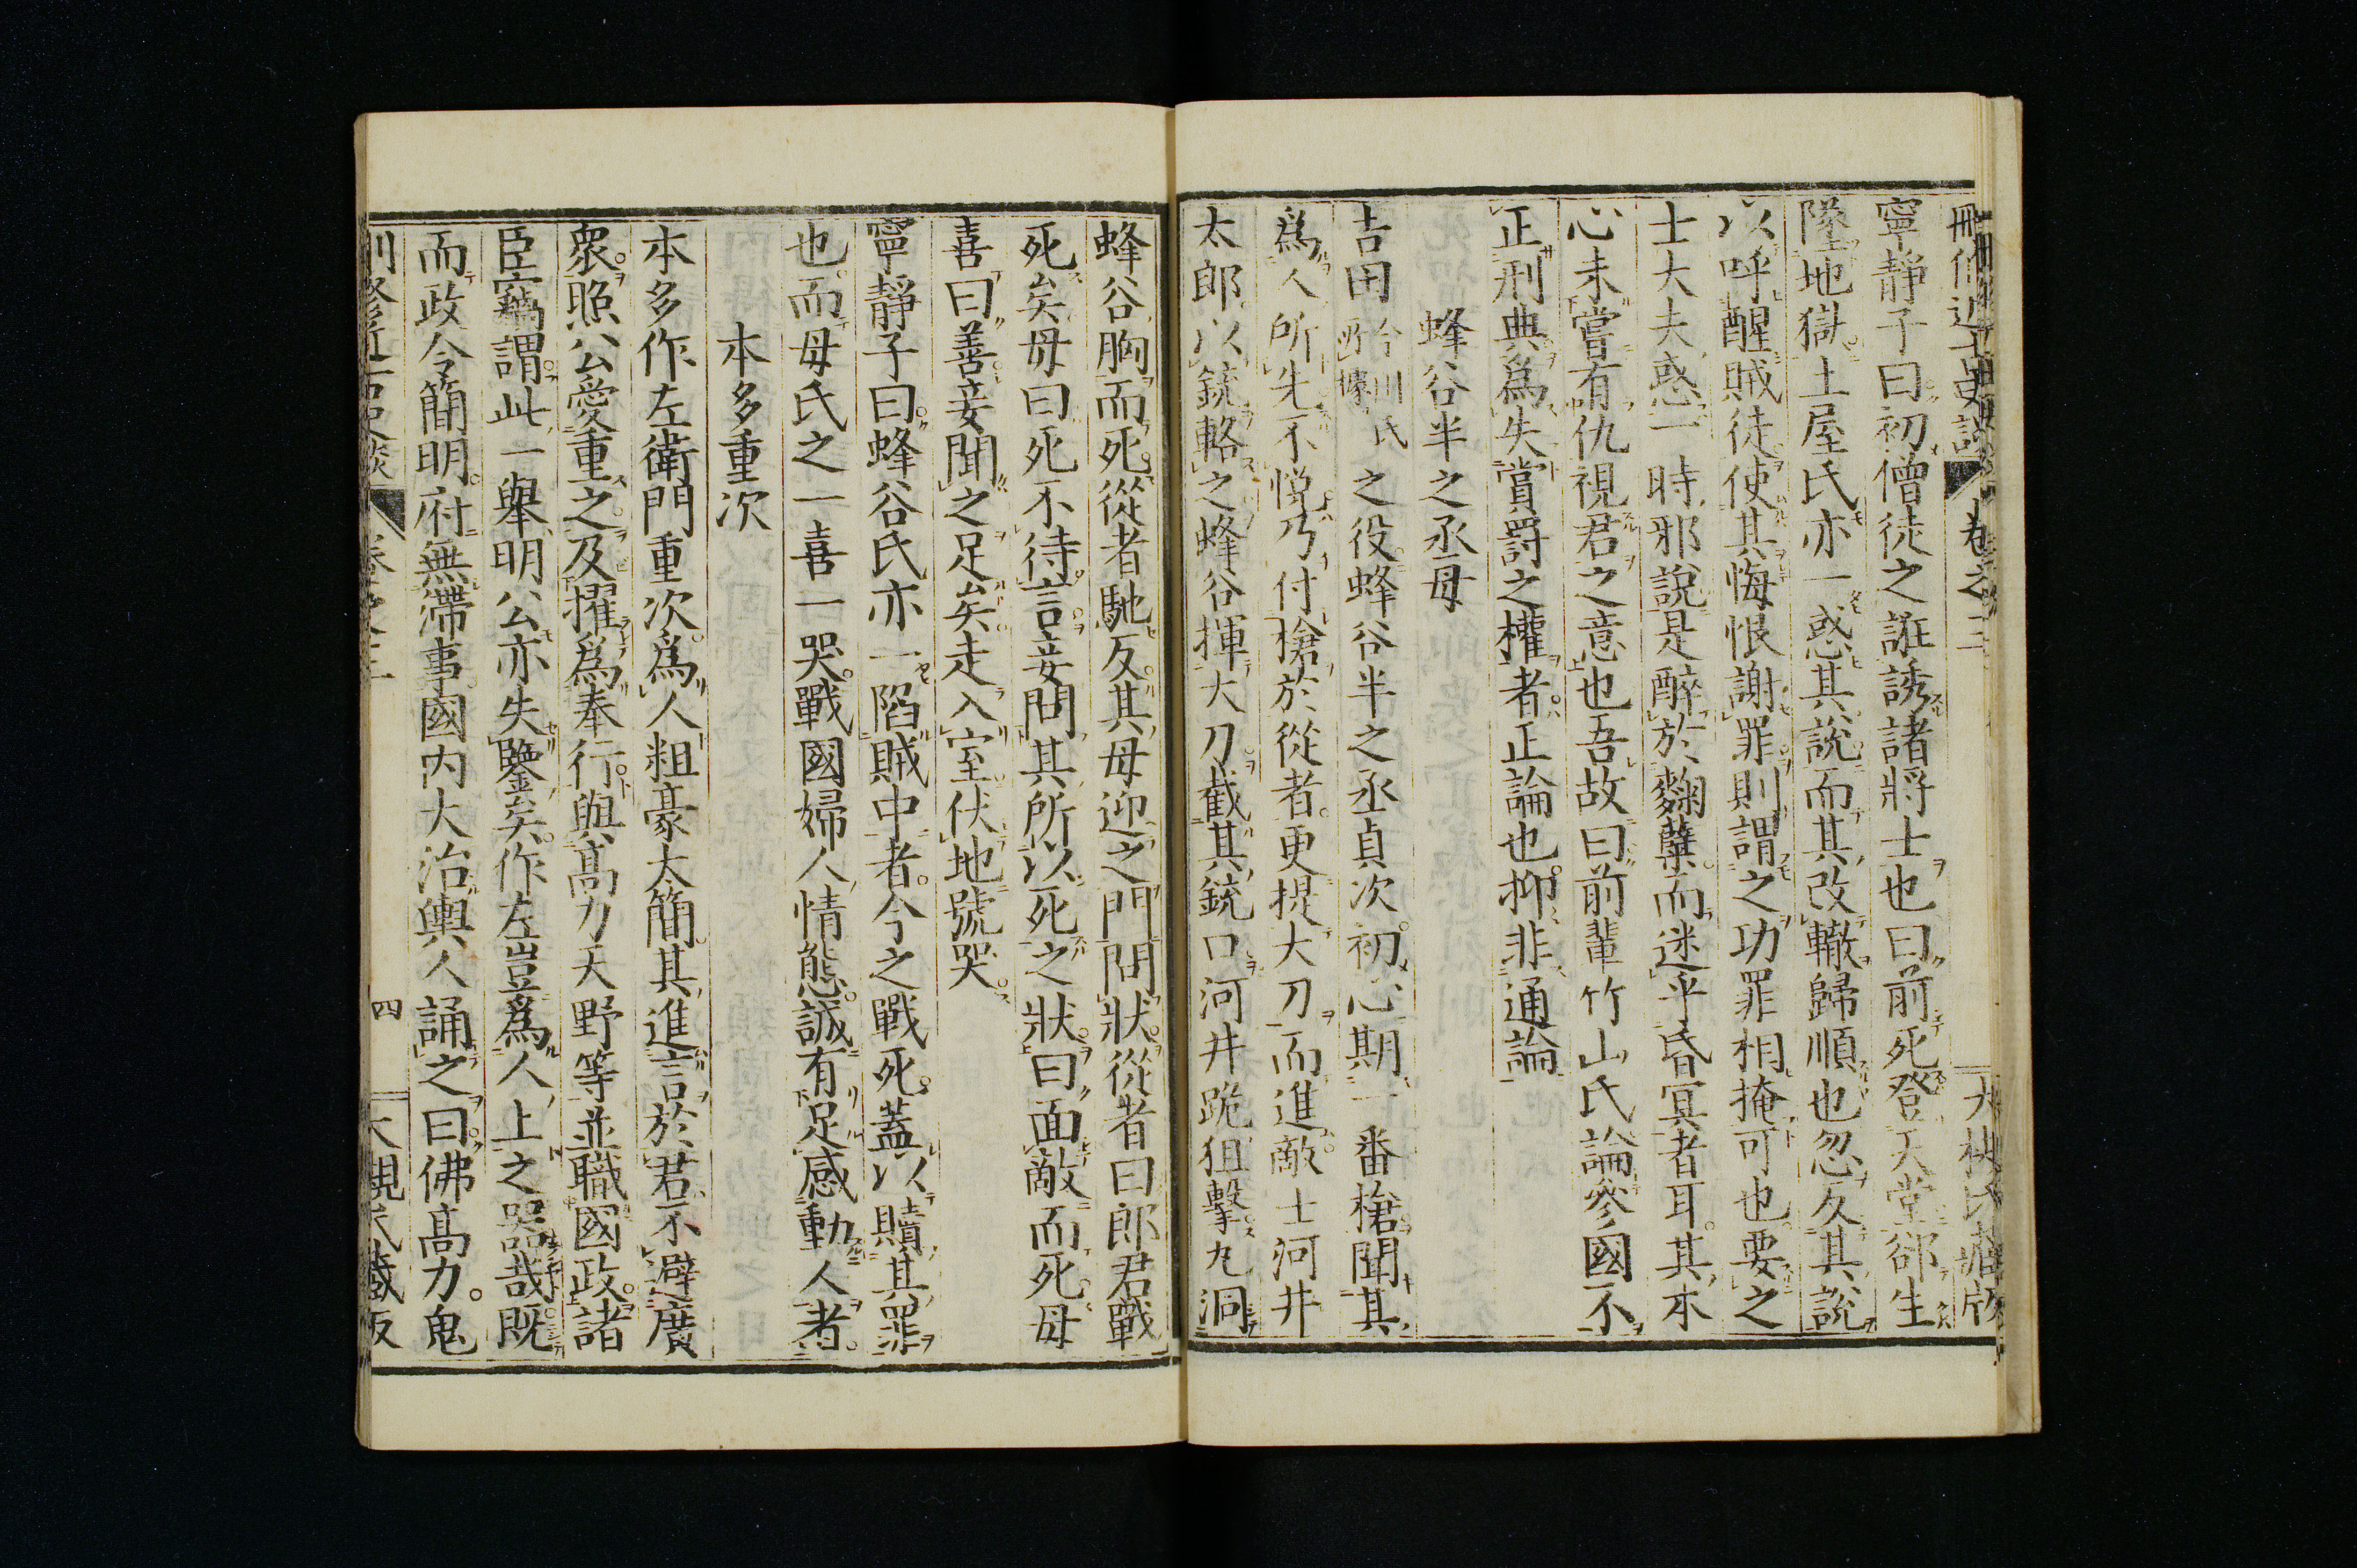 刪修近古史談 卷之二 大槻氏藏版
寧靜子曰初僧徒之誑誘諸將士也曰前死登天堂郤生
墜地獄土屋氏亦一惑其說而其改轍歸順也忽反其說
以呼醒賊徒使其悔恨謝罪則謂之功罪相掩可也要之
士大夫惑一時邪說是醉於麴蘗而迷乎昏冥者耳其本
心未嘗有仇視君之意也吾故曰前輩竹山氏論參國不
正刑典爲失賞罰之權者正論也抑非通論
蜂谷半之丞母
吉田今川氏所據之役蜂谷半之丞貞次初心期一番槍聞其
爲人所先不悅乃付槍於從者更提大刀而進敵士河井
太郎以銃輅之蜂谷揮大刀截其銃口河井跪狙擊丸洞
蜂谷胸而死從者馳反其母迎之門問狀從者曰郎君戰
死矣母曰死不待言妾問其所以死之狀曰面敵而死母
喜曰善妾聞之足矣走入室伏地號哭
寧靜子曰蜂谷氏亦一陷賊中者今之戰死蓋以贖其罪
也而母氏之一喜一哭戰國婦人情態誠有足感動人者
本多重次
本多作左衛門重次爲人粗豪太簡其進言於君不避廣
衆照公愛重之及擢爲奉行與高力天野等並職國政諸
臣竊謂此一舉明公亦失鑒矣作左豈爲人上之器哉既
而政令簡明府無滯事國內大治輿人誦之曰佛高力鬼
刪修近古史談 卷之二 四 大槻氏藏版